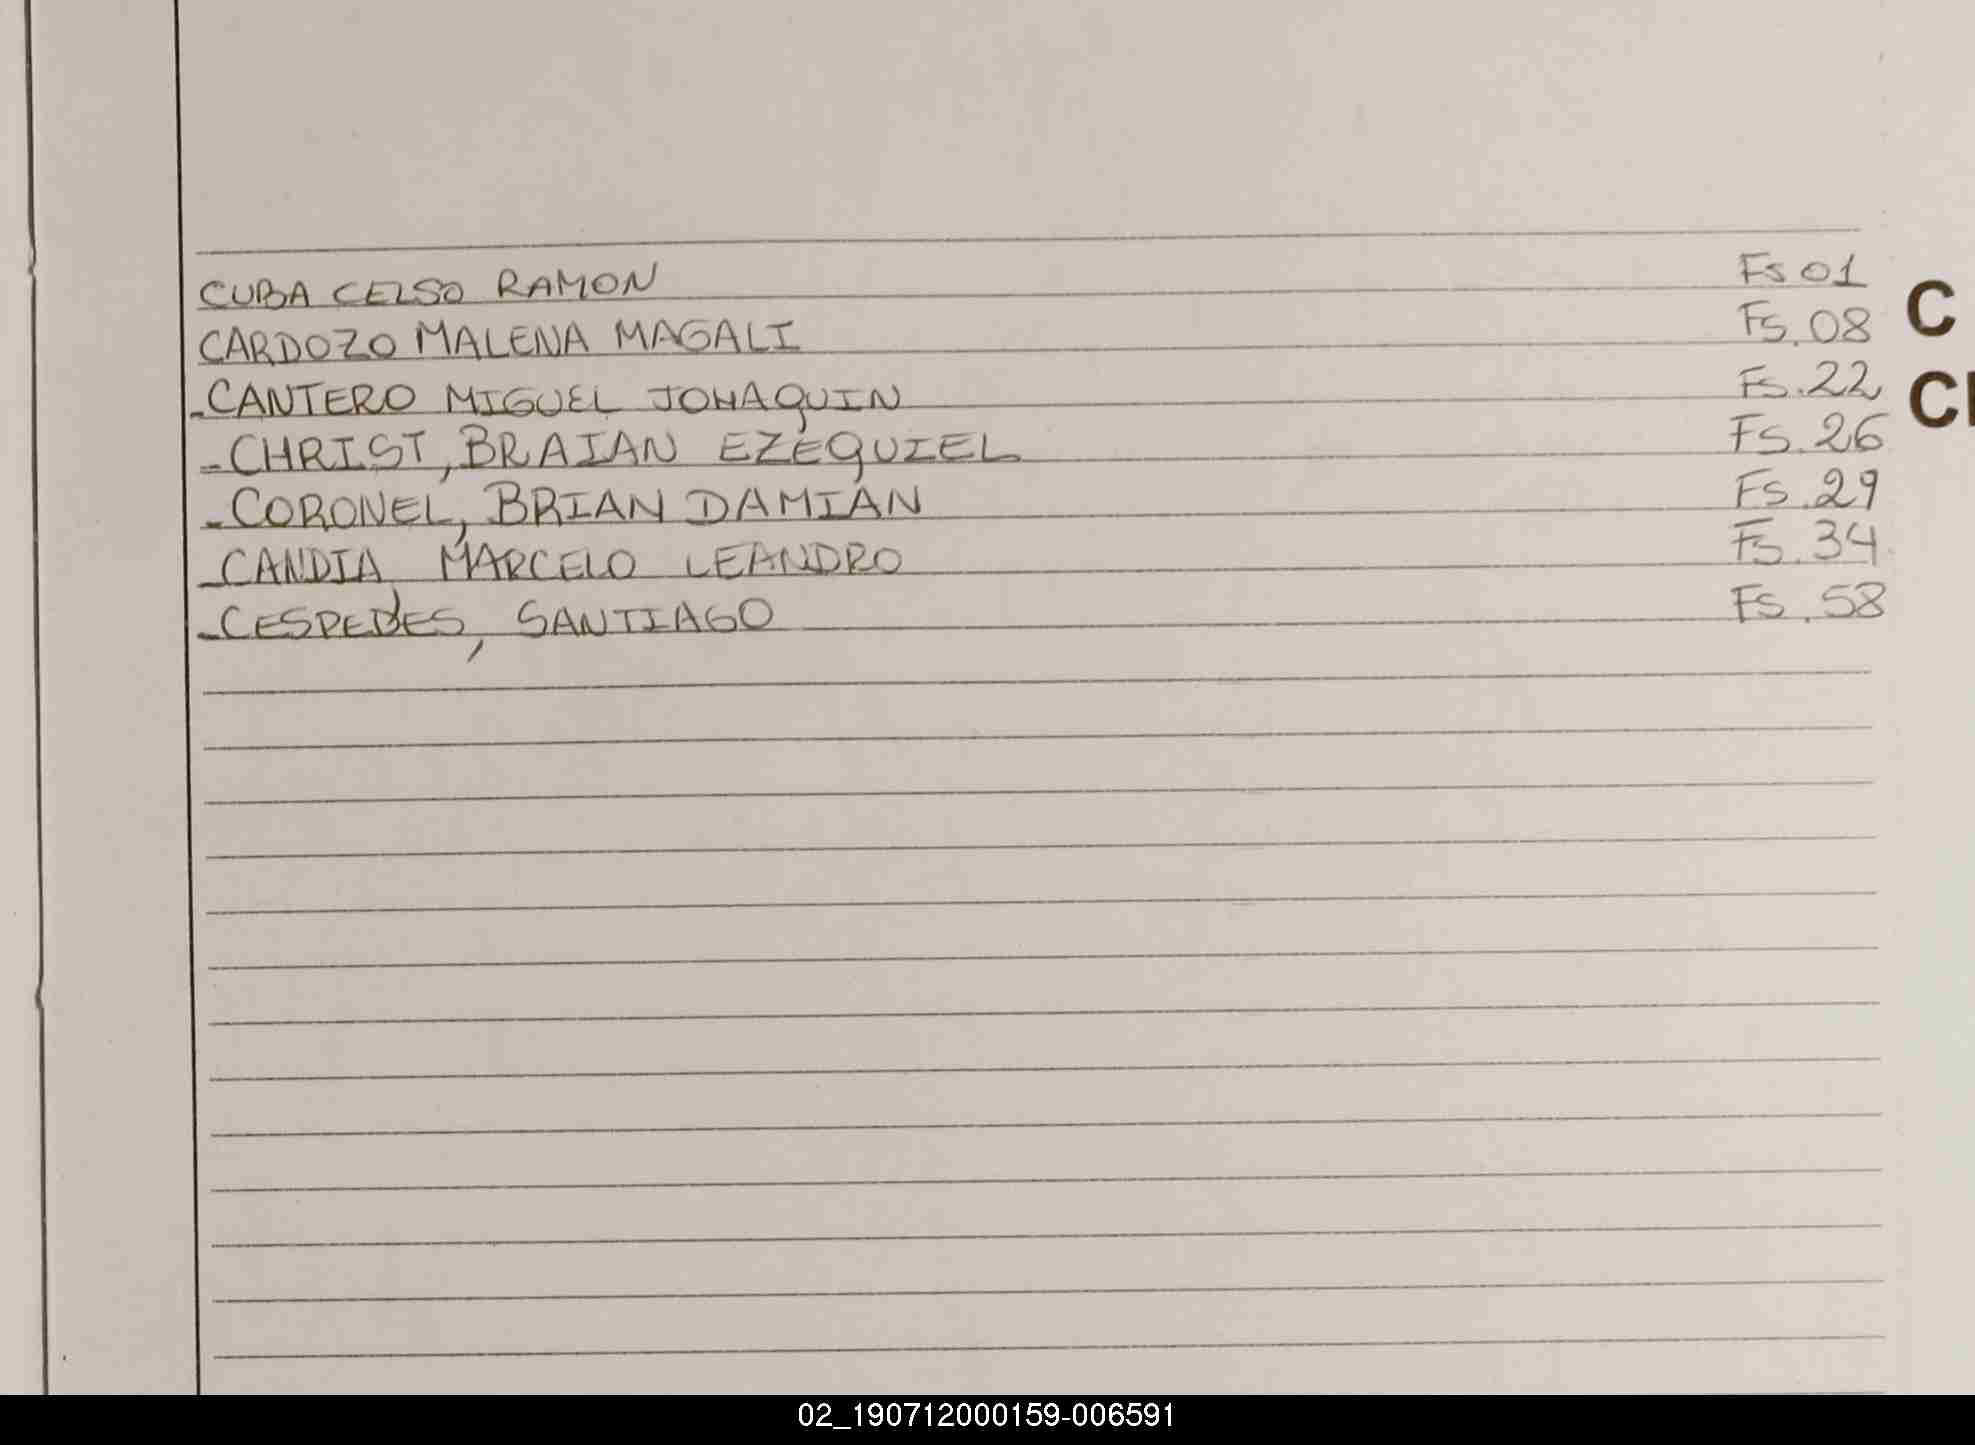 CUBA CELSO RAMON Fs 01
CARDOZO MALENA MAGALI Fs. 08
C
-CANTERO MIGUEL JOHAQUIN Fs. 22
-CHRIST, BRAIAN EZEQUIEL Fs. 26
-CORONEL, BRIAN DAMIAN Fs. 29
-CANDIA, MARCELO LEANDRO Fs. 34
-CESPEDES, SANTIAGO Fs. 58
02_190712000159-006591